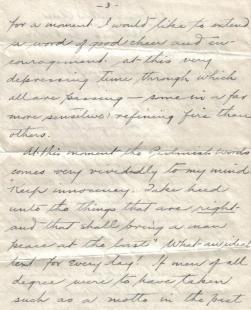 - 3 -
for a moment I would like to extend
a word of good cheer and en-
couragement at this very
depressing time, through which
all are passing - some in a far
more sensitive refining fire than
others.
At this moment the Psalmist's words
comes very vividly to my mind
"Keep innocency. Take heed
unto the things that are right
and that shall bring a man
peace at the last." What an ideal
text for every day! If men of all
degree were to have taken
such as a motto in the past